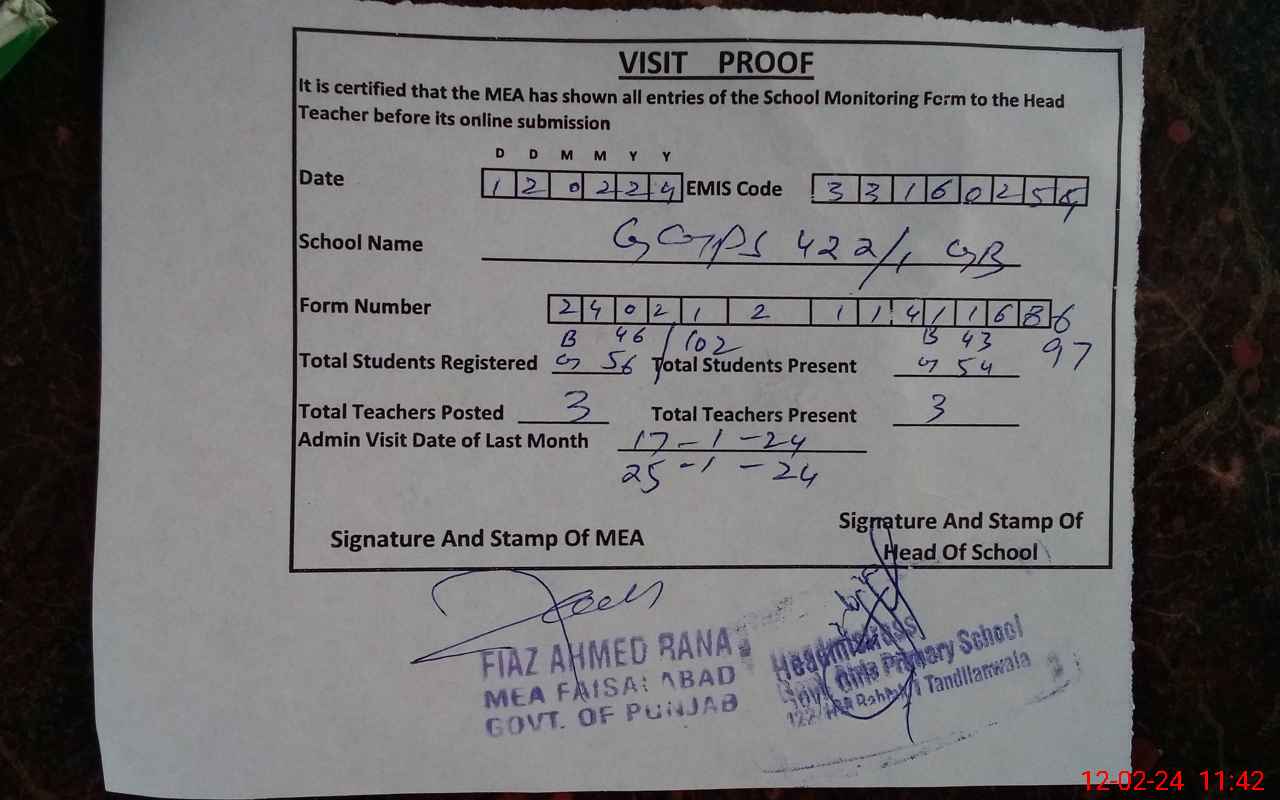 VISIT PROOF
It is certified that the MEA has shown all entries of the School Monitoring Form to the Head
Teacher before its online submission
D D M M Y Y
Date 1 2 0 2 2 4 EMIS Code 3 3 1 6 0 2 5
School Name GGPS 422/1 GB
Form Number 2 4 0 2 1 2 1 1 4 1 1 6 8 6
B 46 / 102 B 43
Total Students Registered G 56 Total Students Present G 54 97
Total Teachers Posted 3 Total Teachers Present 3
Admin Visit Date of Last Month 17-1-24
25-1-24
Signature And Stamp Of MEA
Signature And Stamp Of
Head Of School
FIAZ AHMED RANA
MEA FAISALABAD
GOVT. OF PUNJAB
Headmistress
Govt Girls Primary School
Tandlianwala
12-02-24 11:42